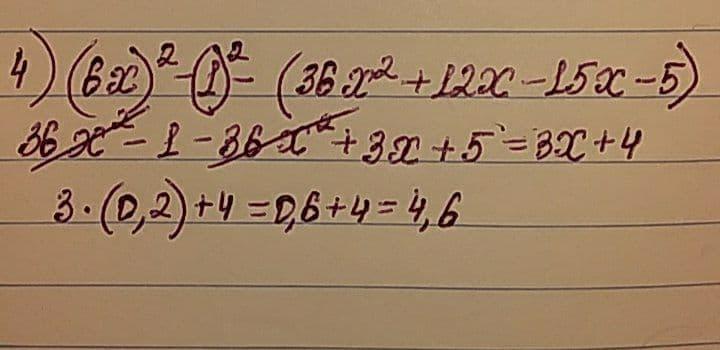 4) (6x)²-(1)²- (36x²+12x-15x-5)
36x²-1-36x²+3x+5=3x+4
3·(0,2)+4=0,6+4=4,6